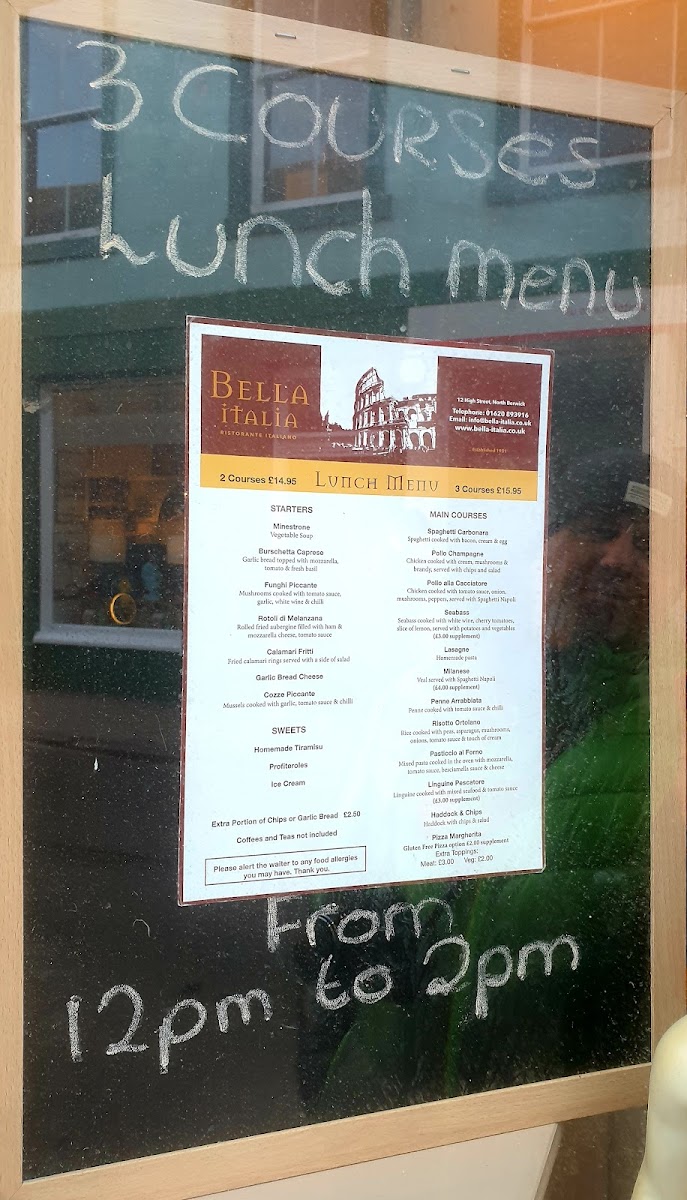 3 Courses
Lunch menu
BELLA
ITALIA
RISTORANTE ITALIANO
12 High Street, North Berwick
Telephone: 01620 893916
Email: info@bella-italia.co.uk
www.bella-italia.co.uk
Established 1981
2 Courses £14.95 LUNCH MENU 3 Courses £15.95
STARTERS
Minestrone
Vegetable Soup
Burschetta Caprese
Garlic bread topped with mozzarella,
tomato & fresh basil
Funghi Piccante
Mushrooms cooked with tomato sauce,
garlic, white wine & chilli
Rotoli di Melanzana
Rolled fried aubergine filled with ham &
mozzarella cheese, tomato sauce
Calamari Fritti
Fried calamari rings served with a side of salad
Garlic Bread Cheese
Cozze Piccante
Mussels cooked with garlic, tomato sauce & chilli
SWEETS
Homemade Tiramisu
Profiteroles
Ice Cream
Extra Portion of Chips or Garlic Bread £2.50
Coffees and Teas not included
Please alert the waiter to any food allergies
you may have. Thank you.
MAIN COURSES
Spaghetti Carbonara
Spaghetti cooked with bacon, cream & egg
Pollo Champagne
Chicken cooked with cream, mushrooms &
brandy, served with chips and salad
Pollo alla Cacciatore
Chicken cooked with tomato sauce, onion,
mushrooms, peppers, served with Spaghetti Napoli
Seabass
Seabass cooked with white wine, cherry tomatoes,
slice of lemon, served with potatoes and vegetables
(£3.00 supplement)
Lasagne
Homemade pasta
Milanese
Veal served with Spaghetti Napoli
(£4.00 supplement)
Penne Arrabbiata
Penne cooked with tomato sauce & chilli
Risotto Ortolano
Rice cooked with peas, asparagus, mushrooms,
onions, tomato sauce & touch of cream
Pasticcio al Forno
Mixed pasta cooked in the oven with mozzarella,
tomato sauce, besciamella sauce & cheese
Linguine Pescatore
Linguine cooked with mixed seafood & tomato sauce
(£3.00 supplement)
Haddock & Chips
Haddock with chips & salad
Pizza Margherita
Gluten Free Pizza option £2.00 supplement
Extra Toppings:
Meat: £3.00 Veg: £2.00
From
12pm to 2pm